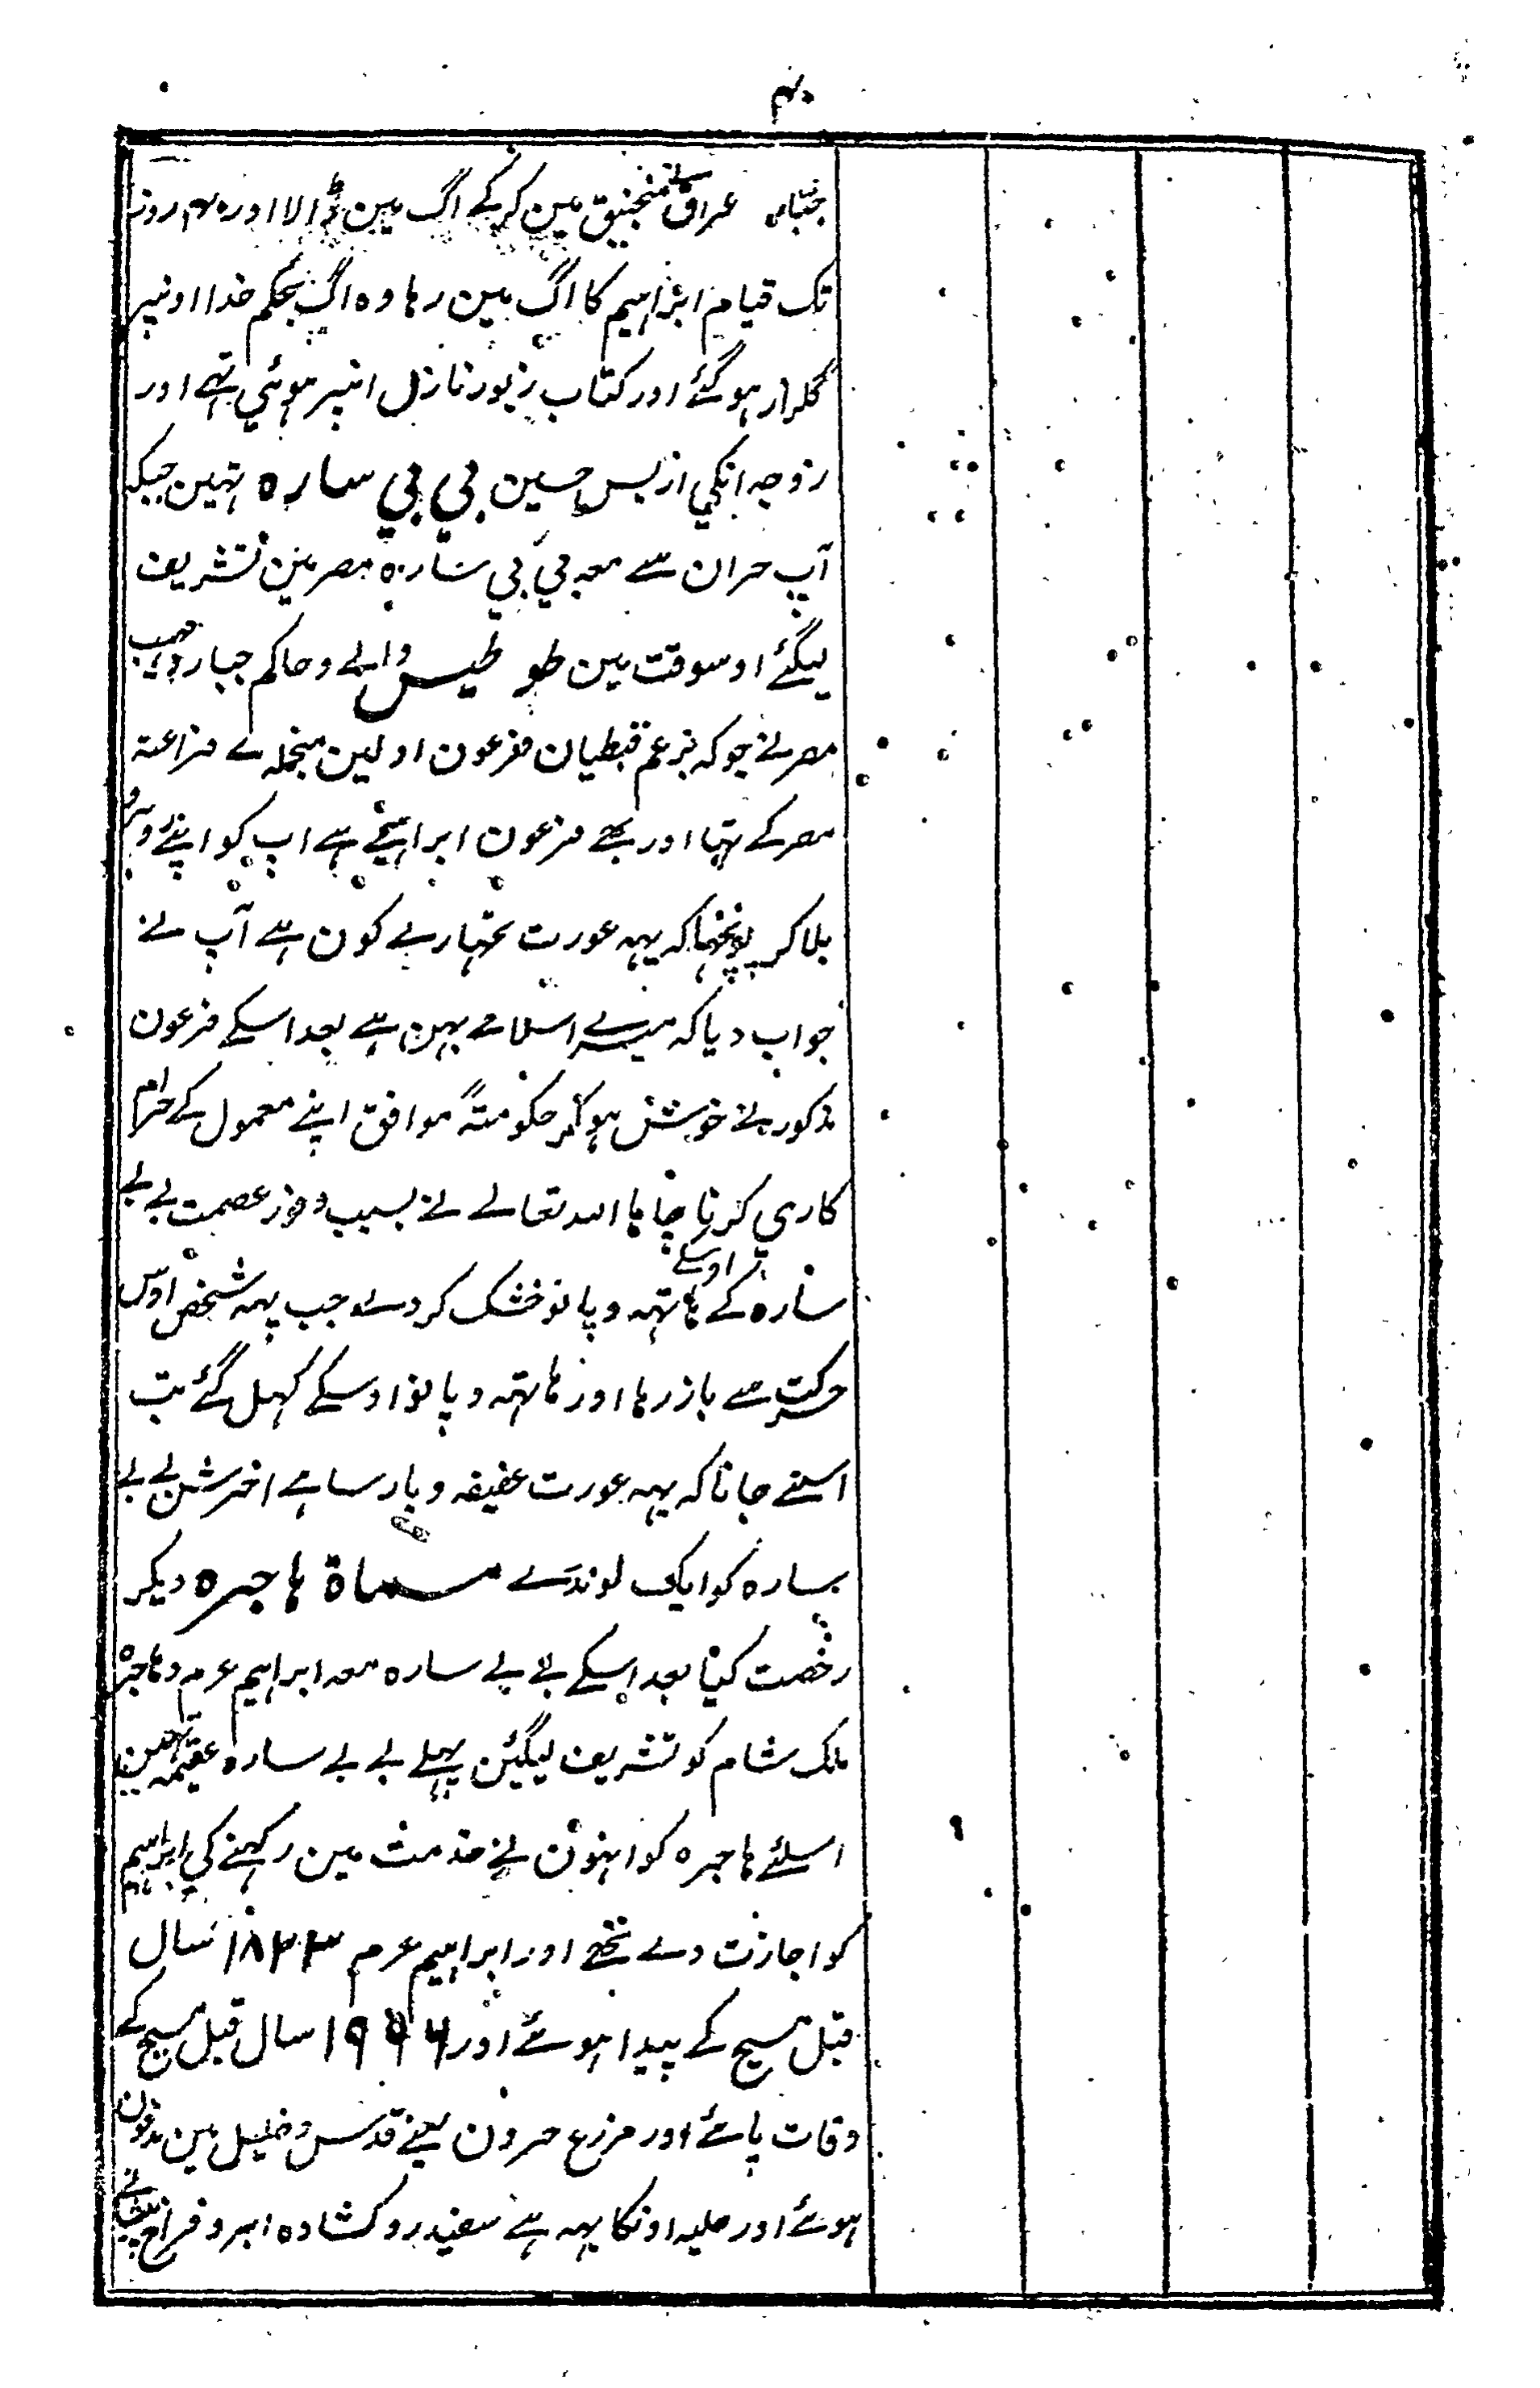 ۴۰
جبار عراق نے منجنیق مین کرکے اگ مین ڈالا اور ۴۰ روز
تک قیام ابراہیم کا اگ مین رہا وہ اگ بحکم خدا اونپر
گلزار ہو گئے اور کتاب زبور نازل انپر ہوئي تہے اور
زوجہ انکي ازبس حسین بي بي سارہ تہین جبکہ
آپ حران سے معہ بي بي سارہ مصر مین تشریف
لیگئے اوسوقت مین طوطیس والے و حاکم جبار
مصر نے جو کہ بزعم قبطیان فرعون اولین منجملہ فراعنہ
مصر کے تہا اور یہے فرعون ابراہیمے ہے اپ کو اپنے روبرو
بلا کر پونچہا کہ یہہ عورت تمہارے کون ہے آپ نے
جواب دیا کہ میرے اسلامے بہن ہے بعد اسکے فرعون
مذکور نے خوش ہو کر حکومتہً موافق اپنے معمول کے حرام
کاري کرنا چاہا اللہ تعالے نے بسبب وفور عصمت بے بے
سارہ کے اوسکے ہاتہہ و پانو خشک کر دے جب یہہ شخص اوس
حرکت سے باز رہا اور ہاتہہ و پانو اوسکے کہل گئے تب
اسنے جانا کہ یہہ عورت عفیفہ و پارسا ہے اخرش بے بے
سارہ کو ایک لونڈے مسماة ہاجرہ دیکر
رخصت کیا بعد اسکے بے بے سارہ معہ ابراہیم عرم و ہاجرہ
ملک شام کو تشریف لیگئین پہلے بے بے سارہ عقیمہ تہین
اسلئے ہاجرہ کو انہون نے خدمت مین رکہنے کي ابراہیم
کو اجازت دے تہے اور ابراہیم عرم ۱۸۲۳ سال
قبل مسیح کے پیدا ہوئے اور سال قبل مسیح کے
وفات پائے اور مزرع حرون یعنے قدس و خلیل مین مدفون
ہوئے اور حلیہ اونکا یہہ ہے سفید رو کشادہ ابرو فراخ پیشانے